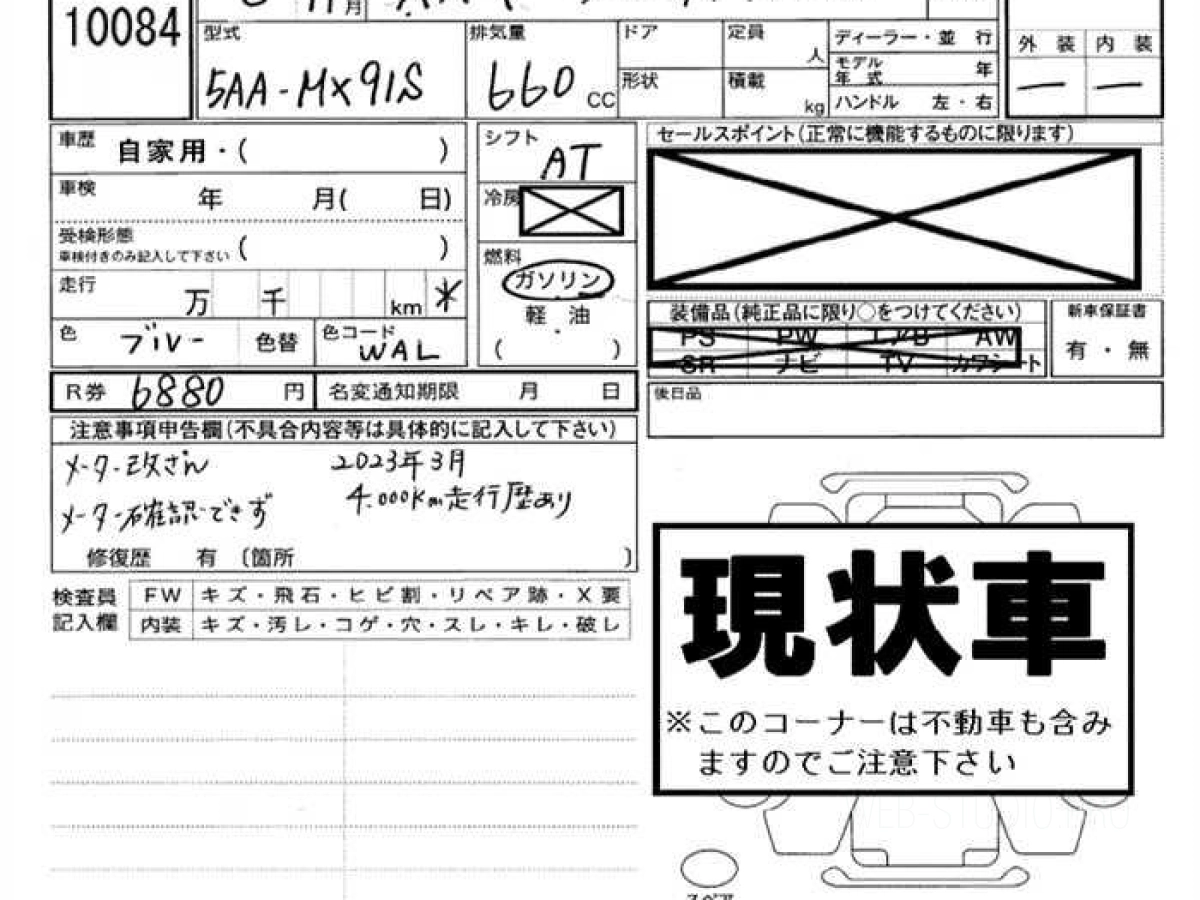 10084
月
型式
5AA-MX91S
排気量
660 CC
ドア
形状
定員
人
積載
kg
ディーラー・並 行
モデル
年 式 年
ハンドル 左・右
外 装 内 装
— —
車歴 自家用・( )
車検 年 月( 日)
受検形態
車検付きのみ記入して下さい ( )
走行 万 千 km *
色 ブルー 色替 色コード WAL
シフト
AT
冷房
燃料
ガソリン
軽 油
・
( )
セールスポイント(正常に機能するものに限ります)
装備品(純正品に限り○をつけてください)
PS PW エアB AW
SR ナビ TV カワシート
新車保証書
有・無
R券 6880 円 名変通知期限 月 日
後日品
注意事項申告欄(不具合内容等は具体的に記入して下さい)
メーター改ざん 2023年3月
メーター確認できず 4.000Km走行歴あり
修復歴 有 〔箇所 〕
検査員
記入欄
FW キズ・飛石・ヒビ割・リペア跡・X要
内装 キズ・汚レ・コゲ・穴・スレ・キレ・破レ
現状車
※このコーナーは不動車も含み
ますのでご注意下さい
スペア